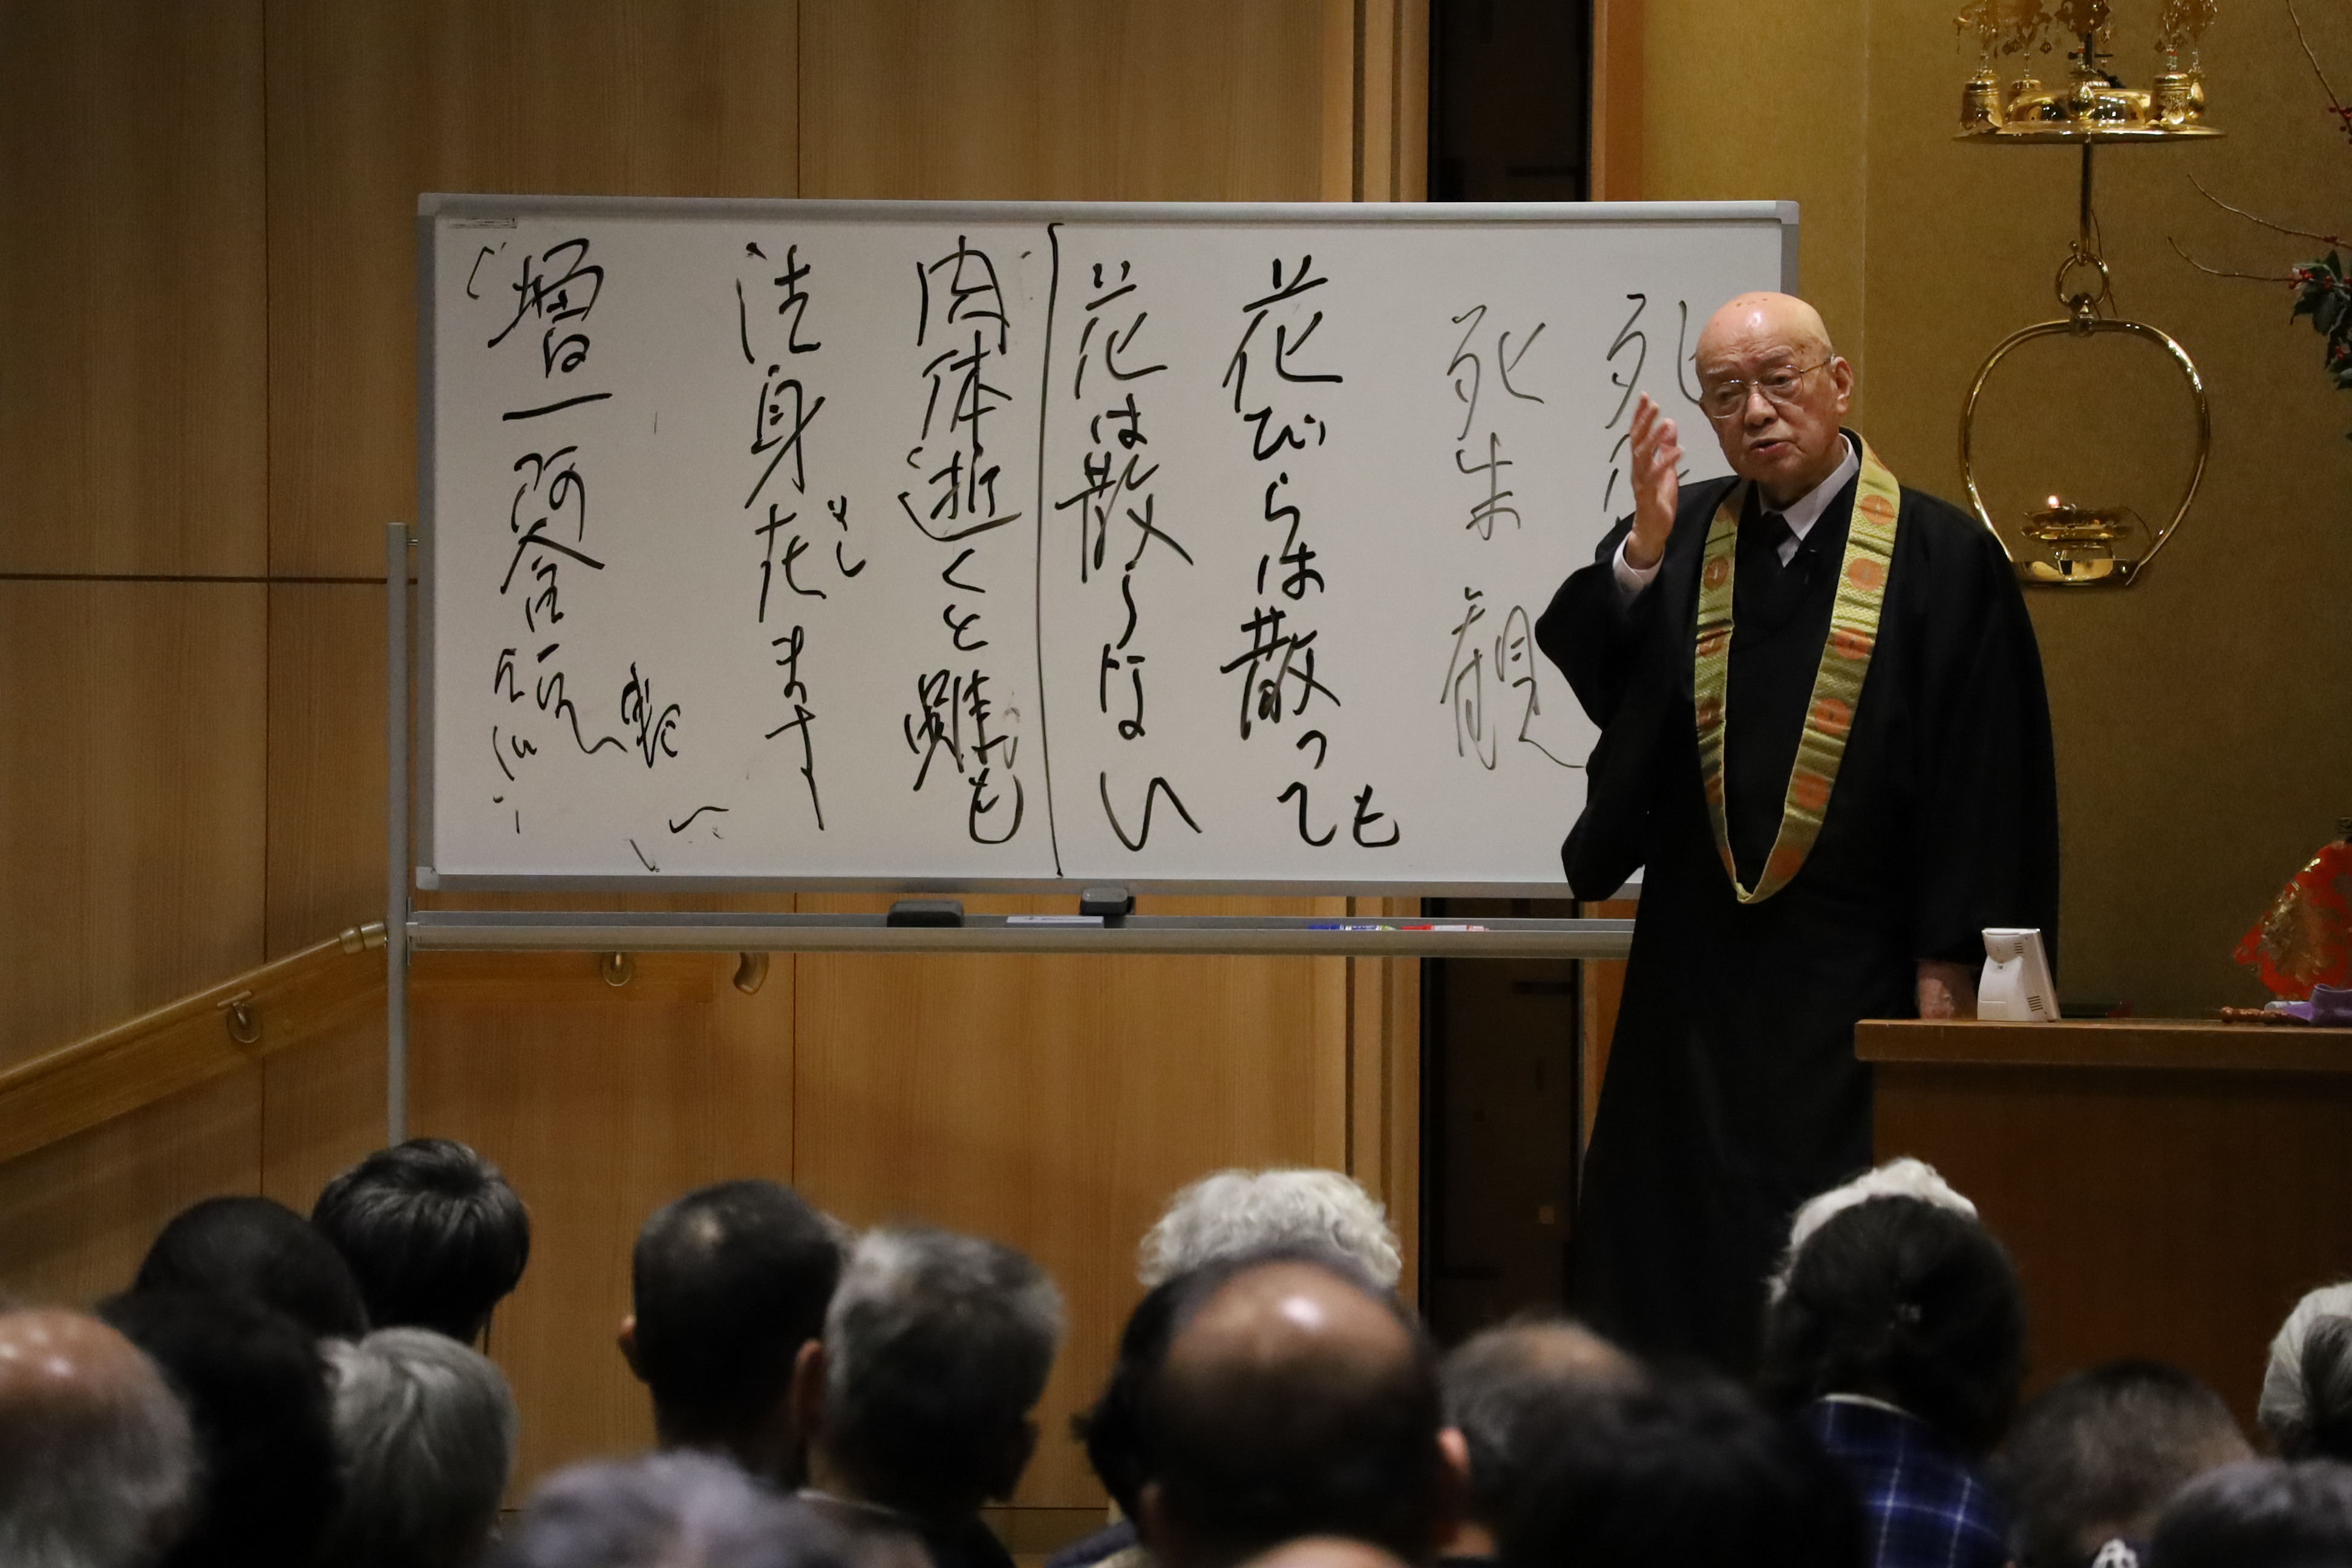 死
死生観
花びらは散っても
花は散らない
肉体逝くと雖も
法身在ます
まし
増一阿含